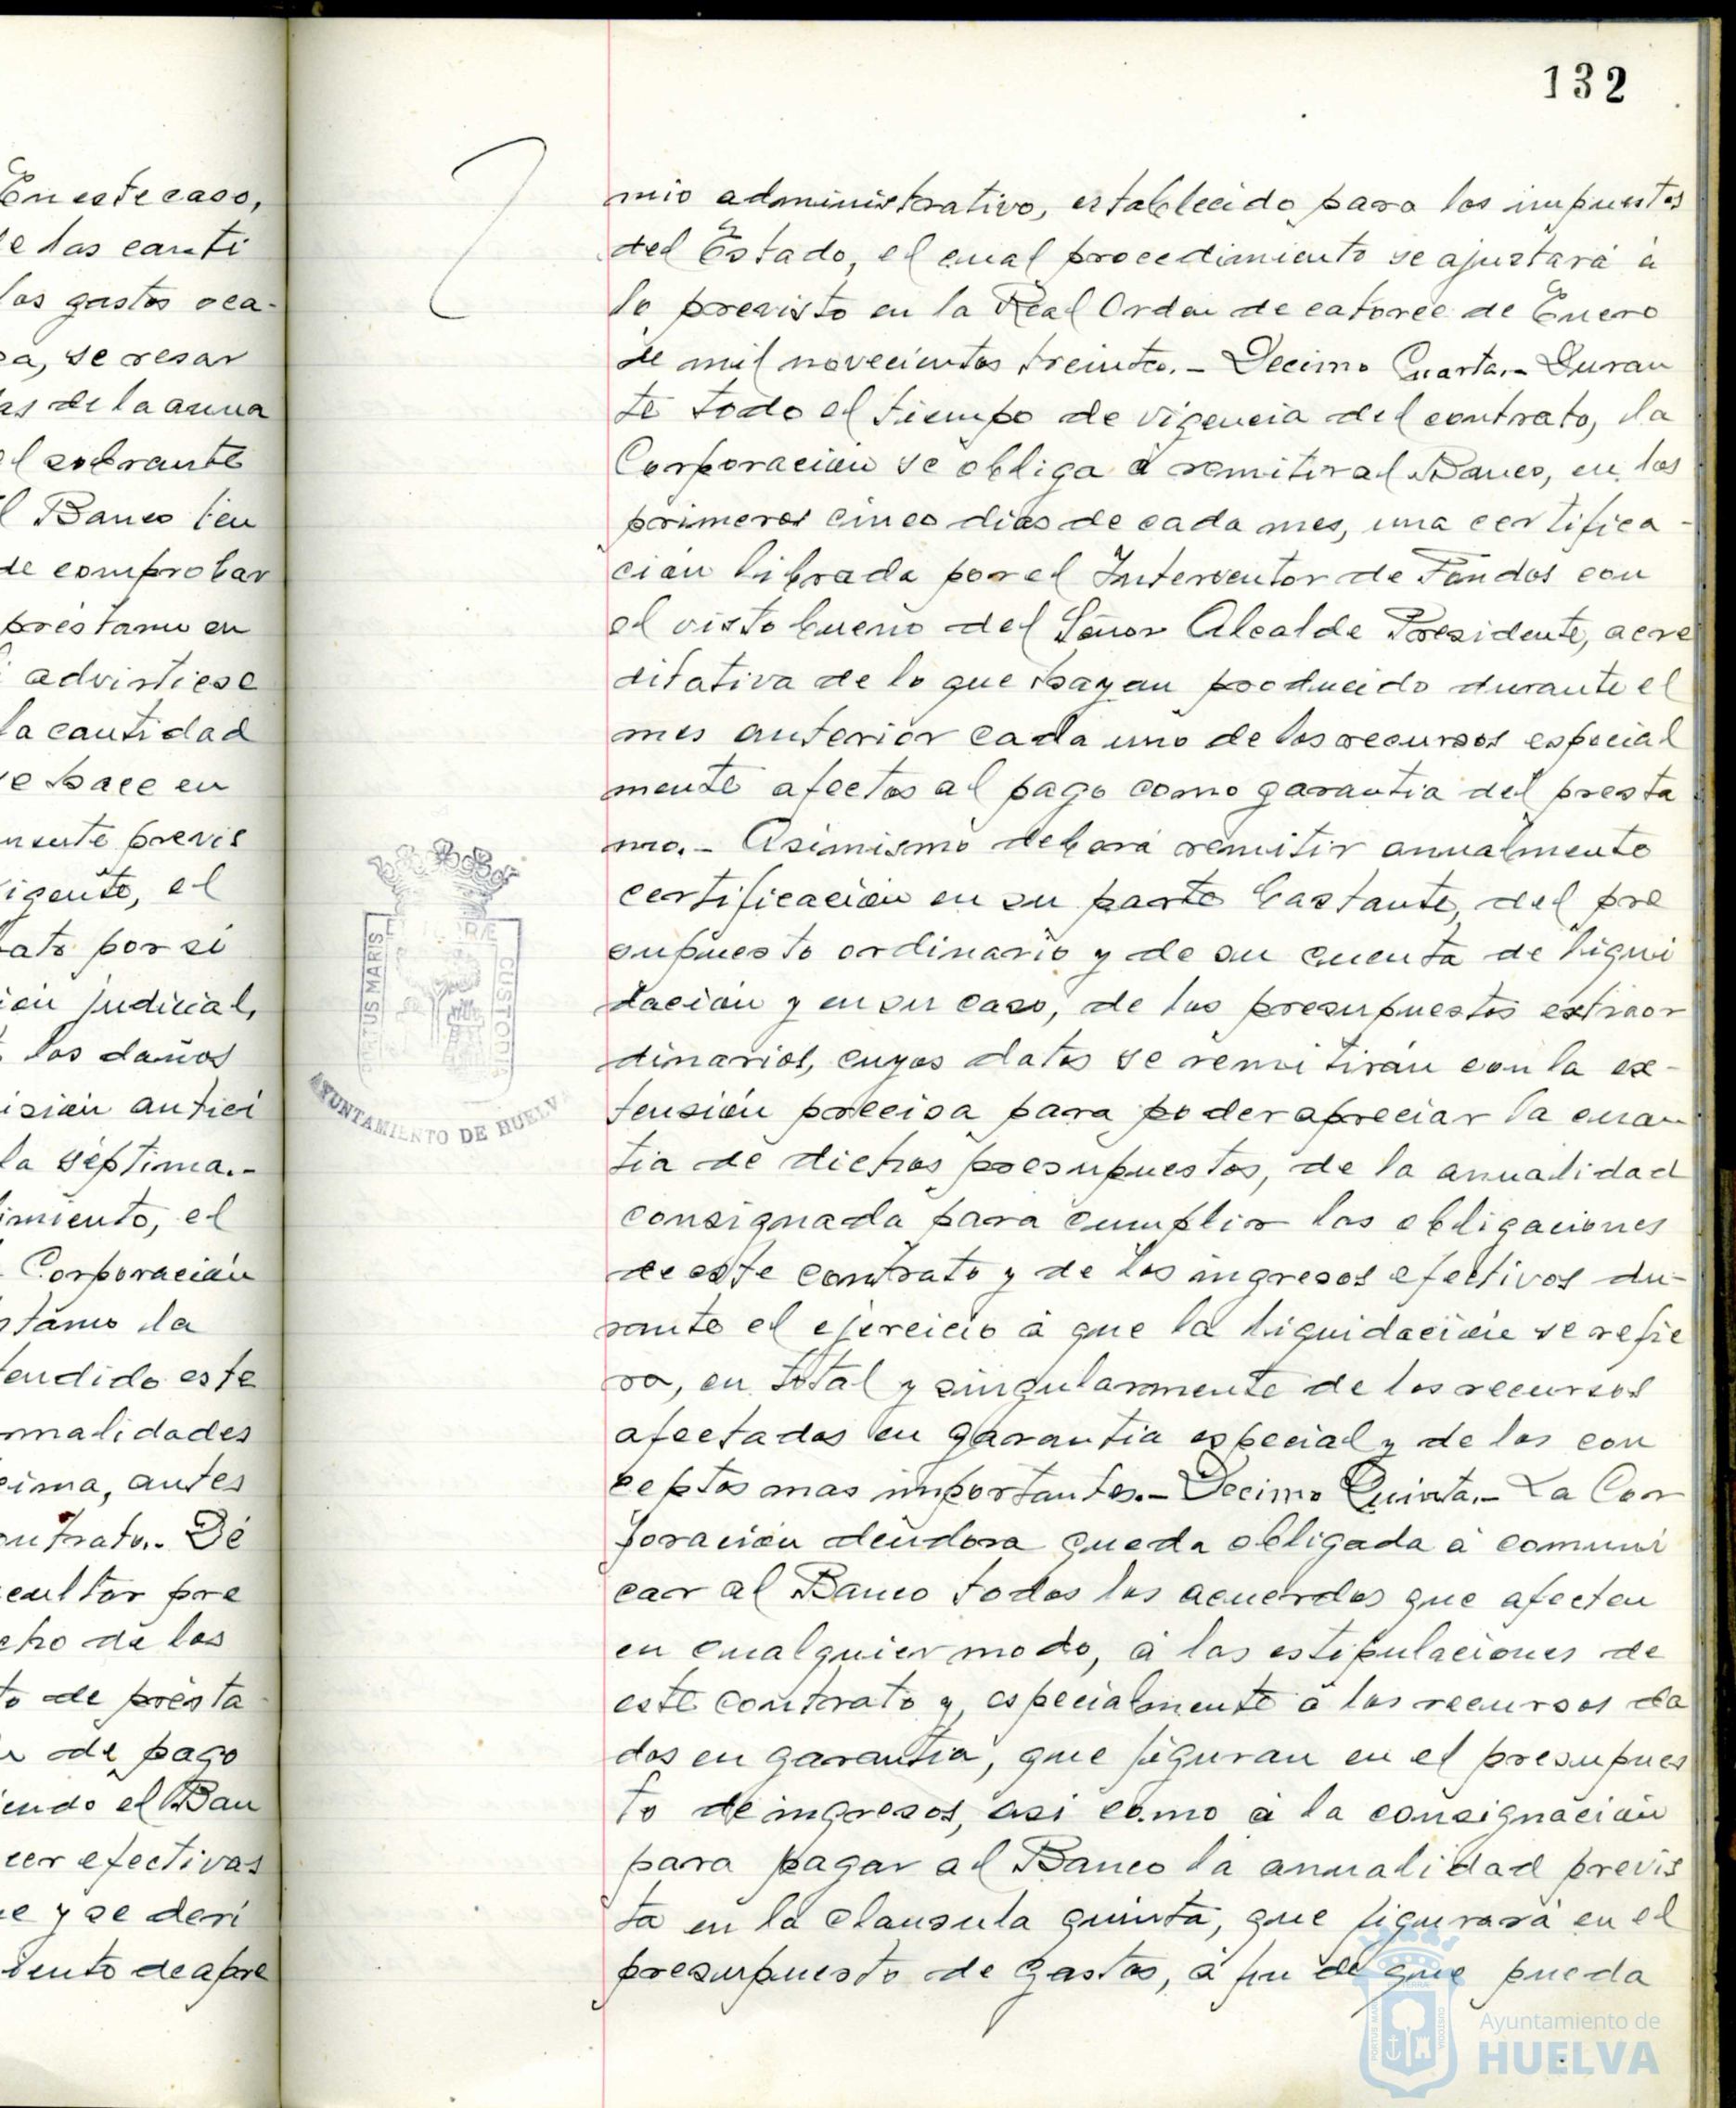 En este caso,
e las canti
los gastos oca-
a, se resar
as de la anua
el sobrante
l Banco ten
de comprobar
préstamo en
i advirtiese
la cantidad
e hace en
nente previs
igente, el
ato por si
ión judicial,
los daños
isión antici
la séptima.-
imiento, el
Corporación
stamo la
tendido este
malidades
cima, antes
ontrato.- Dé
cultor pre
cho de los
to de présta
de pago
iendo el Ban
cer efectivas
e y se deri
iento de apre
132
mio administrativo, establecido para los impuestos
del Estado, el cual procedimiento se ajustará á
lo previsto en la Real Orden de catorce de Enero
de mil novecientos treinta.- Decimo Cuarta.- Duran
te todo el tiempo de vigencia del contrato, la
Corporación se obliga á remitir al Banco, en los
primeros cinco dias de cada mes, una certifica-
ción librada por el Interventor de Fondos con
el visto bueno del Señor Alcalde Presidente, acre
ditativa de lo que hayan producido durante el
mes anterior cada uno de los recursos especial
mente afectos al pago como garantia del presta
mo.- Asimismo deberá remitir anualmente
certificación en su parte bastante, del pre
supuesto ordinario y de su cuenta de liqui
dación y en su caso, de los presupuestos extraor
dinarios, cuyos datos se remitirán con la ex-
tensión precisa para poder apreciar la cuan
tia de dichos presupuestos, de la anualidad
consignada para cumplir las obligaciones
de este contrato y de los ingresos efectivos du-
rante el ejercicio á que la liquidación se refie
ra, en total y singularmente de los recursos
afectados en garantia especial y de los con
ceptos mas importantes.- Decimo Quinta.- La Cor
poración deudora queda obligada á comuni
car al Banco todos los acuerdos que afecten
en cualquier modo, á las estipulaciones de
este contrato y, especialmente á los recursos da
dos en garantia, que figuran en el presupues
to de ingresos, asi como á la consignación
para pagar al Banco la anualidad previs
ta en la clausula quinta, que figurará en el
presupuesto de gastos, á fin de que pueda
PORTUS MARIS
CUSTODIA
AYUNTAMIENTO DE HUELVA
Ayuntamiento de
HUELVA